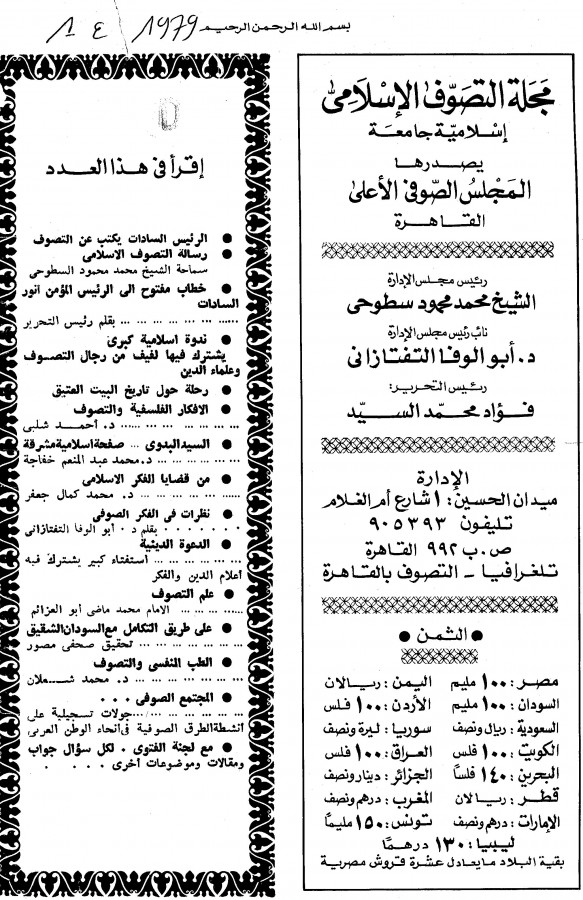 1 ٤ / 1979
بسم الله الرحمن الرحيم
مجلة التصوف الإسلامى
إسلامية جامعة
يصدرها
المجلس الصوفى الأعلى
القاهرة
رئيس مجلس الإدارة
الشيخ محمد محمود سطوحى
نائب رئيس مجلس الإدارة
د. أبو الوفا التفتازانى
رئيس التحرير:
فؤاد محمد السيد
الإدارة
ميدان الحسين: ١ شارع أم الغلام
تليفون ٩٠٥٣٩٣
ص.ب ٩٩٢ القاهرة
تلغرافيا - التصوف بالقاهرة
● الثمن ●
مصر: ١٠٠ مليم اليمن: ريالان
السودان: ١٠٠ مليم الأردن: ١٠٠ فلس
السعودية: ريال ونصف سوريا: ليرة ونصف
الكويت: ١٠٠ فلس العراق: ١٠٠ فلس
البحرين: ١٤٠ فلسًا الجزائر: دينار ونصف
قطر: ريالان المغرب: درهم ونصف
الإمارات: درهم ونصف تونس: ١٥٠ مليمًا
ليبيا: ١٣٠ درهمًا
بقية البلاد ما يعادل عشرة قروش مصرية
إقرأ فى هذا العدد
● الرئيس السادات يكتب عن التصوف
● رسالة التصوف الاسلامى
سماحة الشيخ محمد محمود السطوحى
● خطاب مفتوح الى الرئيس المؤمن انور
السادات
... ... ... ... ... بقلم رئيس التحرير
● ندوة اسلامية كبرى
يشترك فيها لفيف من رجال التصوف
وعلماء الدين
● رحلة حول تاريخ البيت العتيق
● الافكار الفلسفية والتصوف
... ... ... ... ... د. أحمد شلبى
● السيد البدوى ... صفحة اسلامية مشرقة
... ... ... د. محمد عبد المنعم خفاجة
● من قضايا الفكر الاسلامى
... ... ... ... د. محمد كمال جعفر
● نظرات فى الفكر الصوفى
. . . . . . . بقلم د. أبو الوفا التفتازانى
● الدعوة الدينية
... ... ... ... استفتاء كبير يشترك فيه
أعلام الدين والفكر
● علم التصوف
... ... ... ... الامام محمد ماضى أبو العزائم
● على طريق التكامل مع السودان الشقيق
... ... ... ... ... تحقيق صحفى مصور
● الطب النفسى والتصوف
... ... ... ... ... د. محمد شعلان
● المجتمع الصوفى . . .
... ... ... ... ... جولات تسجيلية على
أنشطة الطرق الصوفية فى أنحاء الوطن العربى
● مع لجنة الفتوى . لكل سؤال جواب
ومقالات وموضوعات أخرى . . . .